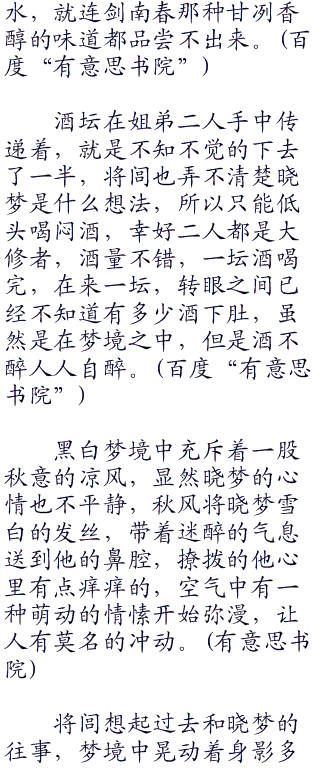 水，就连剑南春那种甘冽香
醇的味道都品尝不出来。(百
度“有意思书院”)
酒坛在姐弟二人手中传
递着，就是不知不觉的下去
了一半，将闾也弄不清楚晓
梦是什么想法，所以只能低
头喝闷酒，幸好二人都是大
修者，酒量不错，一坛酒喝
完，在来一坛，转眼之间已
经不知道有多少酒下肚，虽
然是在梦境之中，但是酒不
醉人人自醉。(百度“有意思
书院”)
黑白梦境中充斥着一股
秋意的凉风，显然晓梦的心
情也不平静，秋风将晓梦雪
白的发丝，带着迷醉的气息
送到他的鼻腔，撩拨的他心
里有点痒痒的，空气中有一
种萌动的情愫开始弥漫，让
人有莫名的冲动。(有意思书
院)
将闾想起过去和晓梦的
往事，梦境中晃动着身影多